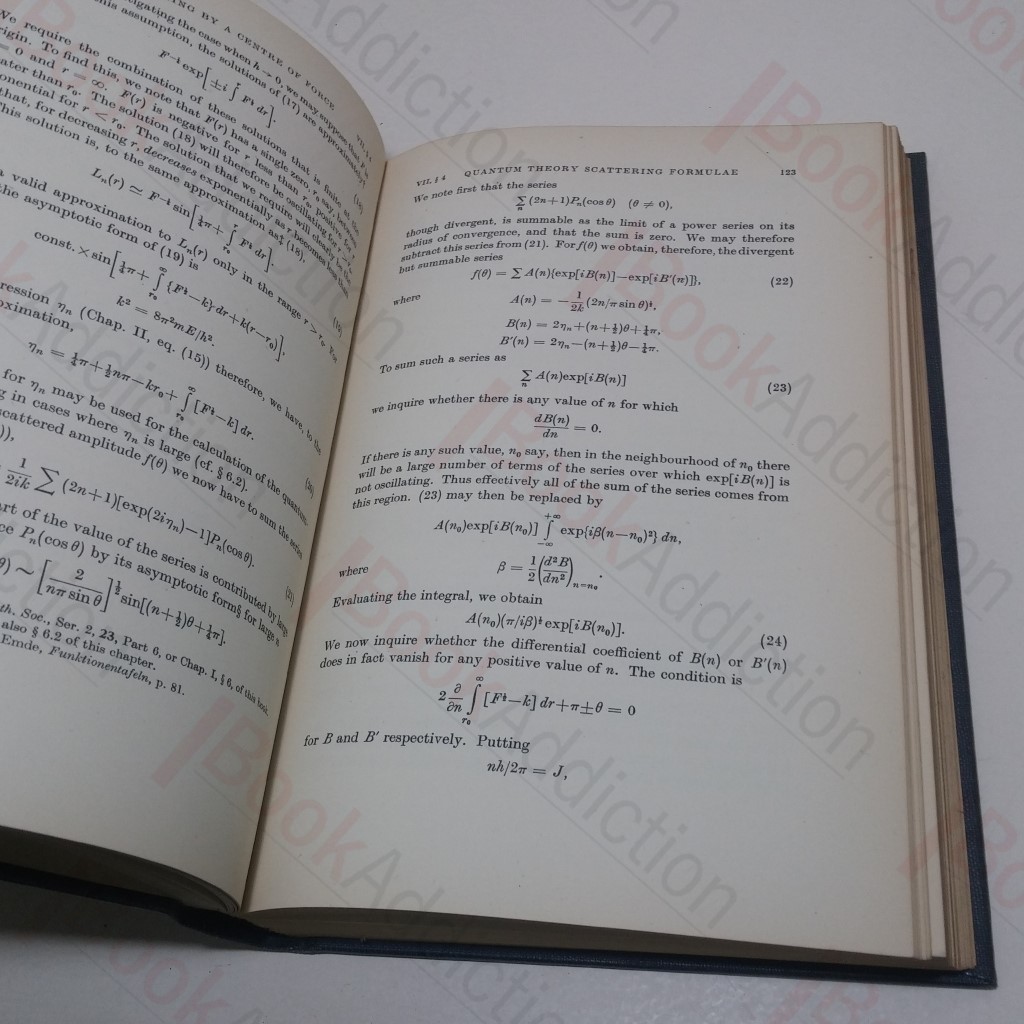 TING BY A CENTRE OF FORCE VII, § 4
tigating the case when h → 0, we may suppose that F is
this assumption, the solutions of (17) are approximately†
F^{-¼} exp[±i ∫^r F^{½} dr].
We require the combination of these solutions that is finite at the
origin. To find this, we note that F(r) has a single zero, r₀ say, between
= 0 and r = ∞. F(r) is negative for r less than r₀, positive for r
ater than r₀. The solution (18) will therefore be oscillating for r > r₀,
onential for r < r₀. The solution that we require will clearly be the
that, for decreasing r, decreases exponentially as r becomes less than
This solution is, to the same approximation as‡ (18),
Lₙ(r) ≃ F^{-¼} sin[¼π + ∫_{r₀}^r F^{½} dr].
a valid approximation to Lₙ(r) only in the range r > r₀. For
the asymptotic form of (19) is
const. × sin[¼π + ∫_{r₀}^∞ {F^{½}−k} dr + k(r−r₀)],
k² = 8π²mE/h².
ression ηₙ (Chap. II, eq. (15)) therefore, we have, to the
oximation,
ηₙ = ¼π + ½nπ − kr₀ + ∫_{r₀}^∞ [F^{½}−k] dr.
for ηₙ may be used for the calculation of the quantum
g in cases where ηₙ is large (cf. § 6.2).
scattered amplitude f(θ) we now have to sum the series
)),
1/2ik ∑ (2n+1)[exp(2iηₙ)−1]Pₙ(cos θ). (21)
art of the value of the series is contributed by large
ce Pₙ(cos θ) by its asymptotic form§ for large n
θ) ∼ [2/nπ sin θ]^{½} sin[(n+½)θ+¼π].
th. Soc., Ser. 2, 23, Part 6, or Chap. I, § 6, of this book.
also § 6.2 of this chapter.
Emde, Funktionentafeln, p. 81.
VII, § 4 QUANTUM THEORY SCATTERING FORMULAE 123
We note first that the series
∑ₙ (2n+1)Pₙ(cos θ) (θ ≠ 0),
though divergent, is summable as the limit of a power series on its
radius of convergence, and that the sum is zero. We may therefore
subtract this series from (21). For f(θ) we obtain, therefore, the divergent
but summable series
f(θ) = ∑ A(n){exp[iB(n)]−exp[iB′(n)]}, (22)
where A(n) = −1/2k (2n/π sin θ)^{½},
B(n) = 2ηₙ+(n+½)θ+¼π,
B′(n) = 2ηₙ−(n+½)θ−¼π.
To sum such a series as
∑ₙ A(n)exp[iB(n)] (23)
we inquire whether there is any value of n for which
dB(n)/dn = 0.
If there is any such value, n₀ say, then in the neighbourhood of n₀ there
will be a large number of terms of the series over which exp[iB(n)] is
not oscillating. Thus effectively all of the sum of the series comes from
this region. (23) may then be replaced by
A(n₀)exp[iB(n₀)] ∫_{−∞}^{+∞} exp{iβ(n−n₀)²} dn,
where β = ½(d²B/dn²)_{n=n₀}.
Evaluating the integral, we obtain
A(n₀)(π/iβ)^{½} exp[iB(n₀)]. (24)
We now inquire whether the differential coefficient of B(n) or B′(n)
does in fact vanish for any positive value of n. The condition is
2 ∂/∂n ∫_{r₀}^∞ [F^{½}−k] dr+π±θ = 0
for B and B′ respectively. Putting
nh/2π = J,
BookAddiction